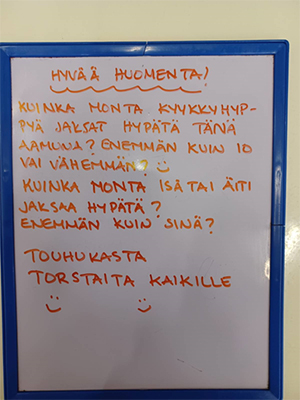 HYVÄÄ HUOMENTA!
KUINKA MONTA KYYKKYHYP-
PYÄ JAKSAT HYPÄTÄ TÄNÄ
AAMUNA? ENEMMÄN KUIN 10
VAI VÄHEMMÄN? ☺
KUINKA MONTA ISÄ TAI ÄITI
JAKSAA HYPÄTÄ?
ENEMMÄN KUIN SINÄ?
TOUHUKASTA
TORSTAITA KAIKILLE
☺ ☺